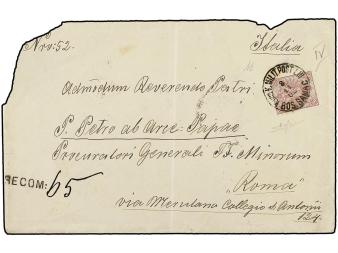 Nro: 52.
Italia
IV
Admodum Reverendo Patri
P. Petro ab Arce-Papae
Procuratori Generali Ff. Minorum
"Roma"
via Merulana Collegio S. Antonii
124.
RECOM: 65